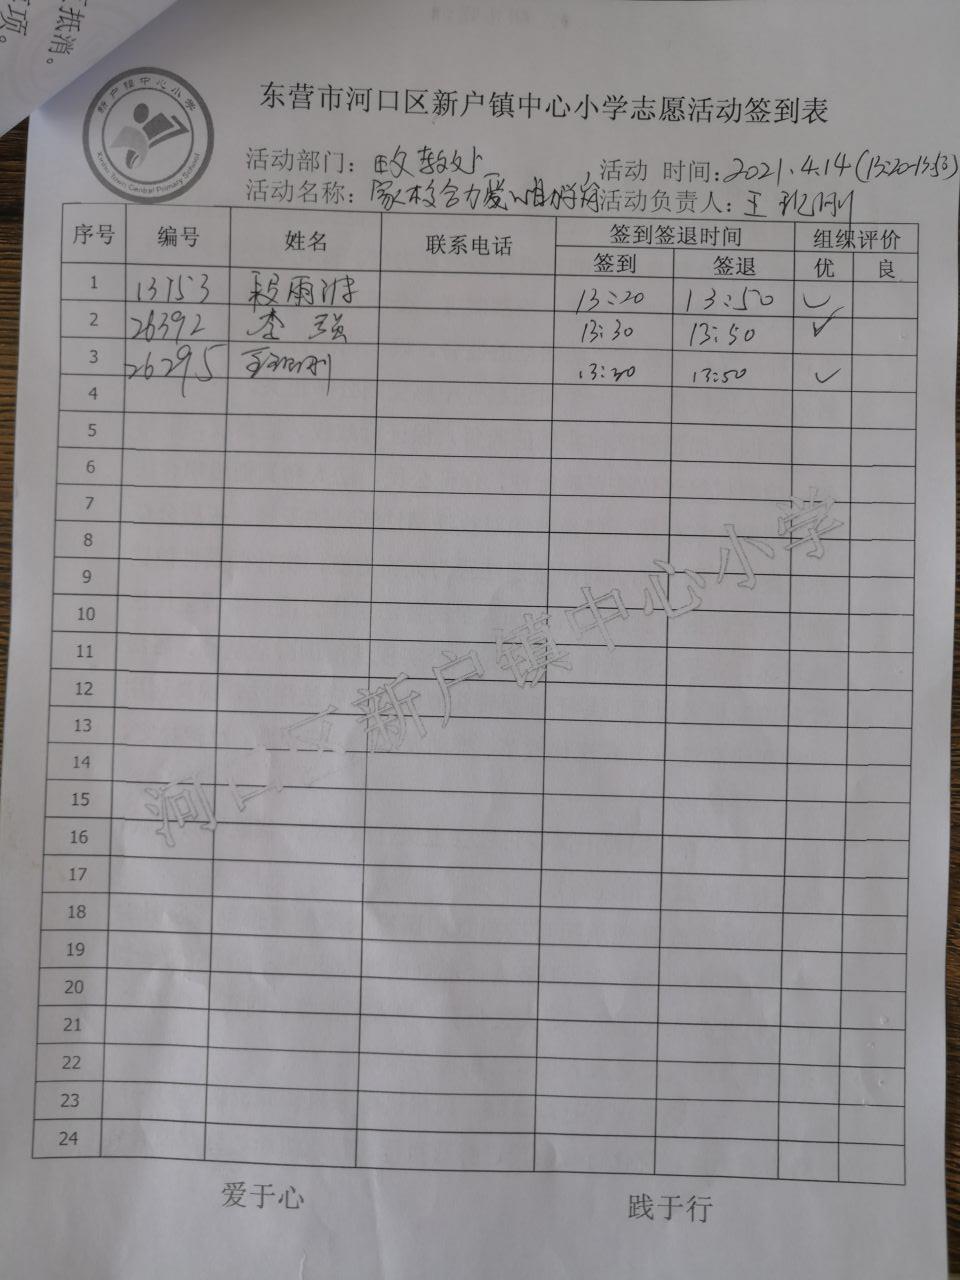 抵消。
项。
新户镇中心小学
Xinhu Town Central Primary School
东营市河口区新户镇中心小学志愿活动签到表
活动部门：政教处 活动 时间：2021.4.14(13:20-13:50)
活动名称：家校合力爱心 活动负责人：王 刚
序号 编号 姓名 联系电话 签到签退时间 组织评价
签到 签退 优 良
1 13753 段雨 13:20 13:50 ✓
2 26392 李强 13:30 13:50 ✓
3 26295 王 刚 13:30 13:50 ✓
4
5
6
7
8
9
10
11
12
13
14
15
16
17
18
19
20
21
22
23
24
河口区新户镇中心小学
爱于心 践于行